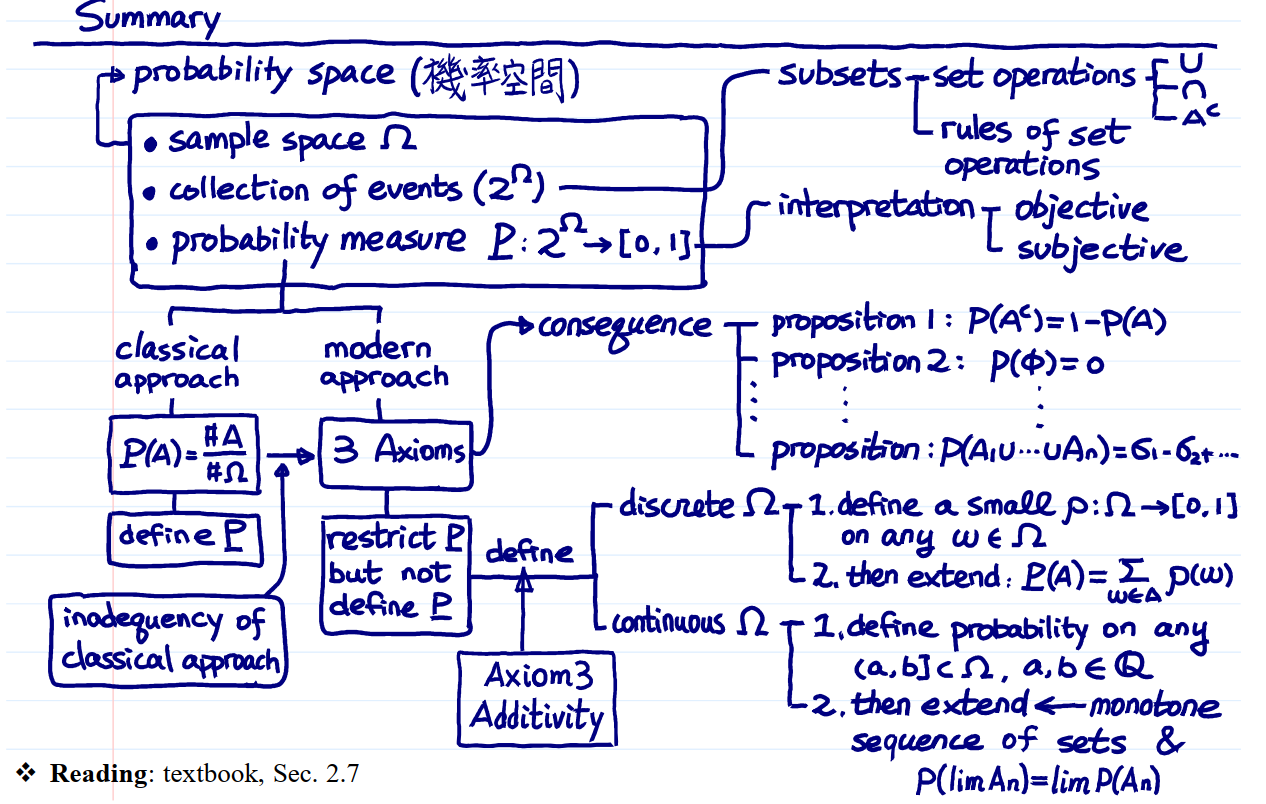 Summary
probability space (機率空間)
• sample space Ω
• collection of events (2^Ω)
• probability measure P: 2^Ω → [0, 1]
subsets
set operations
∪
∩
A^c
rules of set
operations
interpretation
objective
subjective
classical
approach
P(A)=#A/#Ω
define P
inadequency of
classical approach
modern
approach
3 Axioms
restrict P
but not
define P
consequence
proposition 1: P(A^c)=1-P(A)
proposition 2: P(Φ)=0
proposition: P(A₁∪⋯∪Aₙ)=σ₁-σ₂+⋯
define
Axiom3
Additivity
discrete Ω
1. define a small p: Ω→[0,1]
on any ω∈Ω
2. then extend: P(A)=Σ_{ω∈A} p(ω)
continuous Ω
1. define probability on any
(a,b]⊂Ω, a,b∈ℚ
2. then extend ← monotone
sequence of sets &
P(lim Aₙ)=lim P(Aₙ)
❖ Reading: textbook, Sec. 2.7